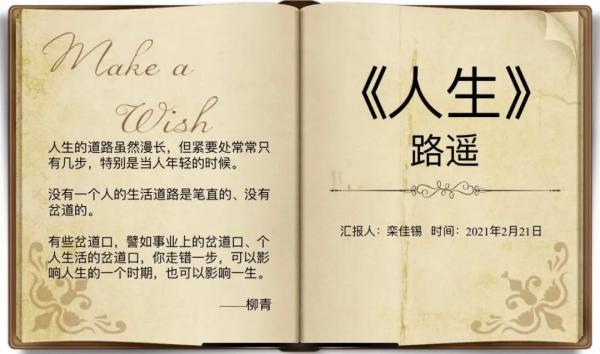 Make a
Wish
人生的道路虽然漫长，但紧要处常常只
有几步，特别是当人年轻的时候。
没有一个人的生活道路是笔直的、没有
岔道的。
有些岔道口，譬如事业上的岔道口、个
人生活的岔道口，你走错一步，可以影
响人生的一个时期，也可以影响一生。
——柳青
《人生》
路遥
汇报人：栾佳锡 时间：2021年2月21日